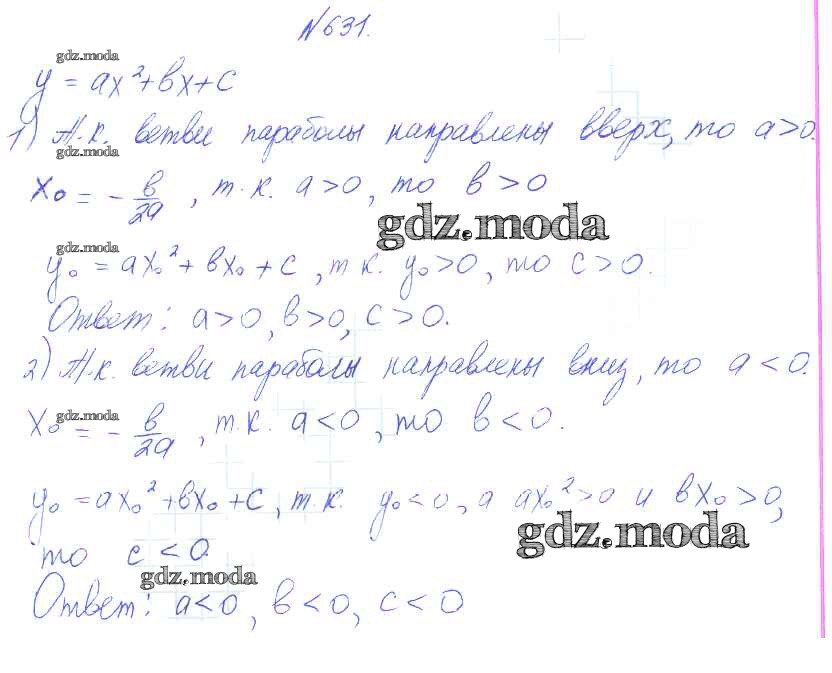 №631.
gdz.moda
y = ax²+bx+c
1) Т.к. ветви параболы направлены вверх, то a>0.
gdz.moda
x₀ = - b/2a , т.к. a>0, то b>0
gdz.moda
gdz.moda
y₀ = ax₀²+bx₀+c , т.к. y₀>0, то c>0.
Ответ: a>0, b>0, c>0.
2) Т.к. ветви параболы направлены вниз, то a<0.
gdz.moda
x₀ = - b/2a , т.к. a<0, то b<0.
y₀ = ax₀²+bx₀+c, т.к. y₀<0, а ax₀²>0 и bx₀>0,
gdz.moda
то c<0.
gdz.moda
Ответ: a<0, b<0, c<0